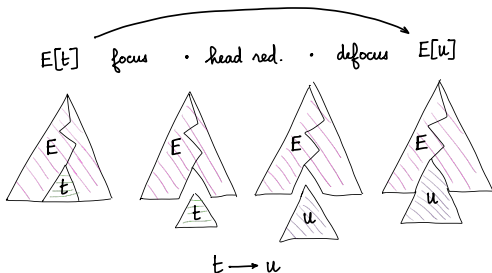 E[t] focus · head red. · defocus E[u]
E E E E
t t u u
t → u